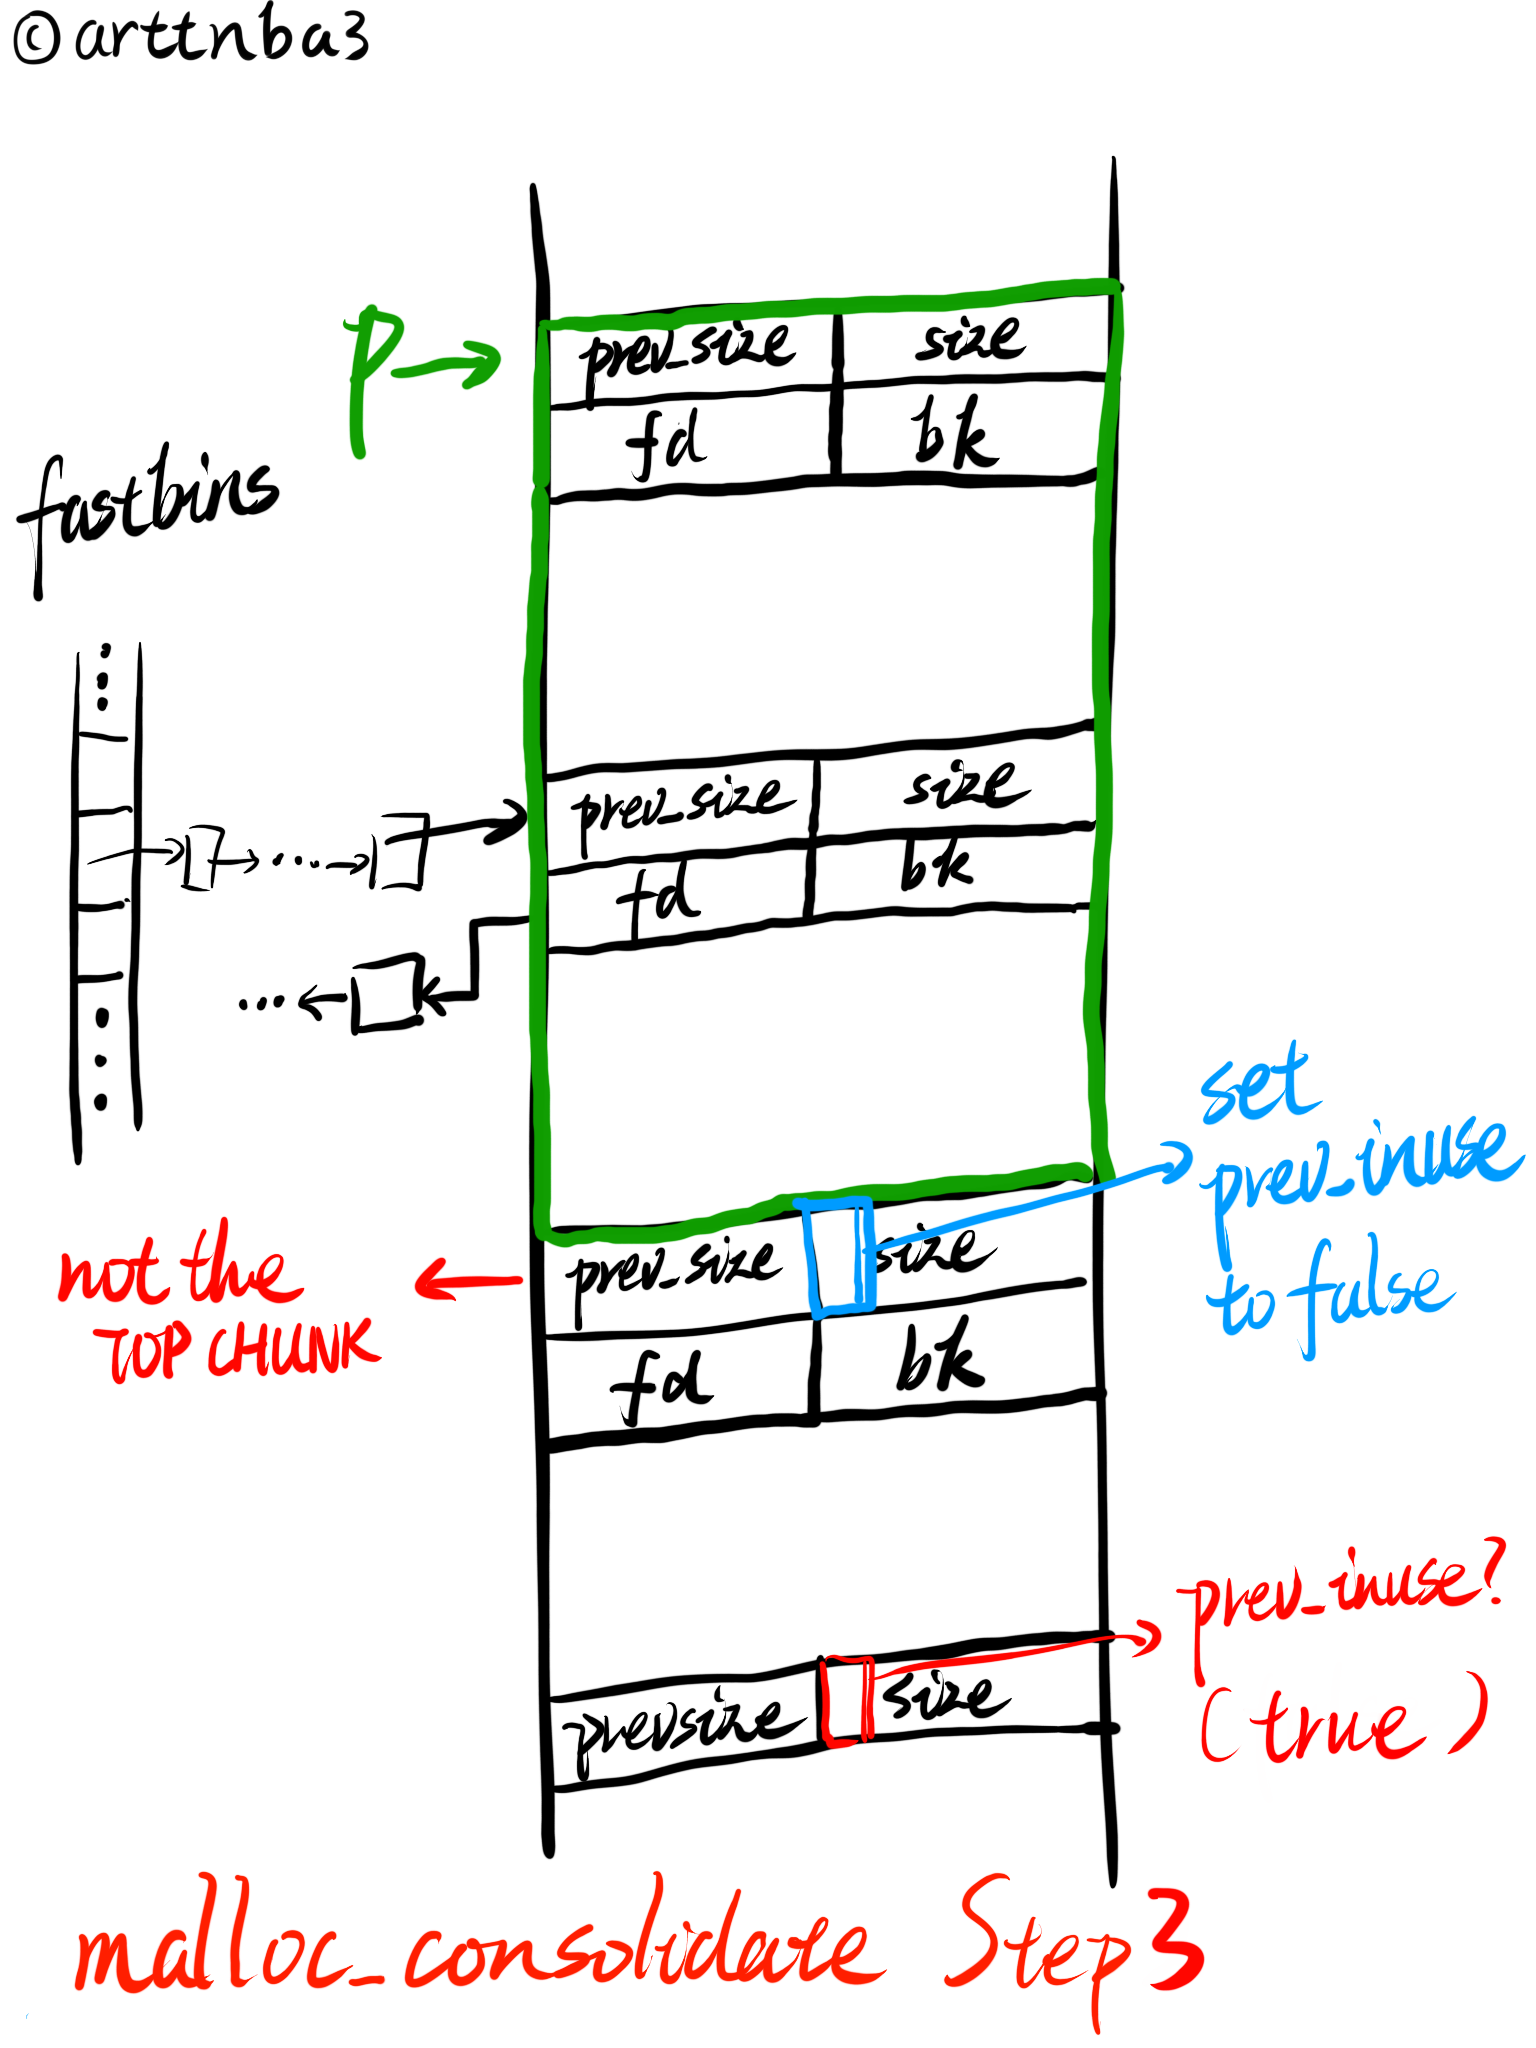 ©arttnba3
P
prev_size size
fd bk
fastbins
prev_size size
fd bk
set
prev_inuse
to false
prev_size size
not the
TOP CHUNK
fd bk
prev_inuse?
(true)
prevsize size
malloc_consolidate Step3